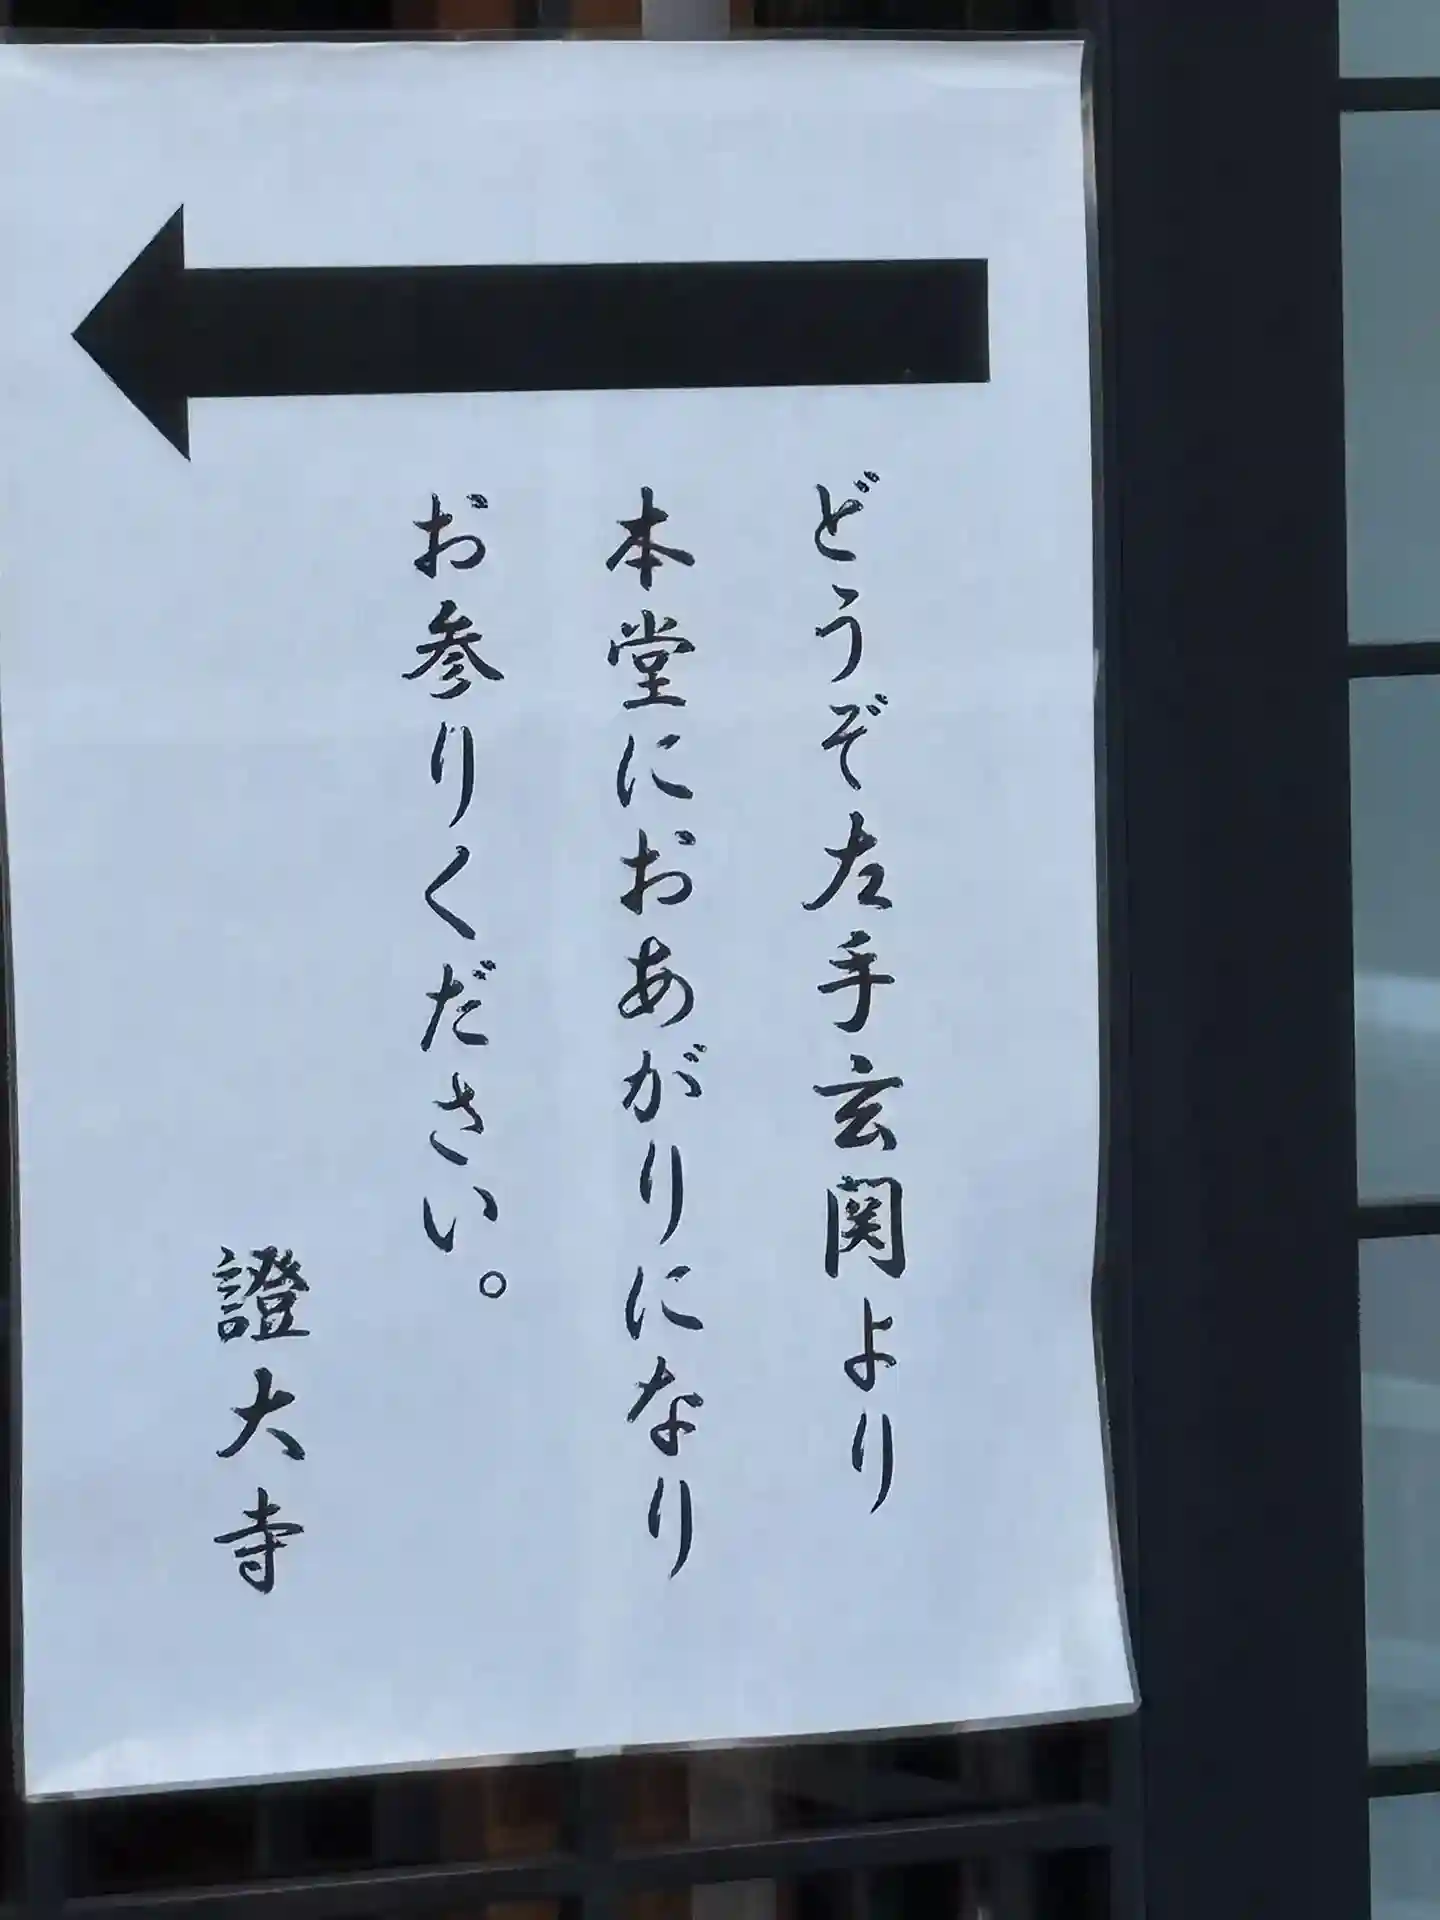 どうぞ左手玄関より
本堂におあがりになり
お参りください。
證大寺